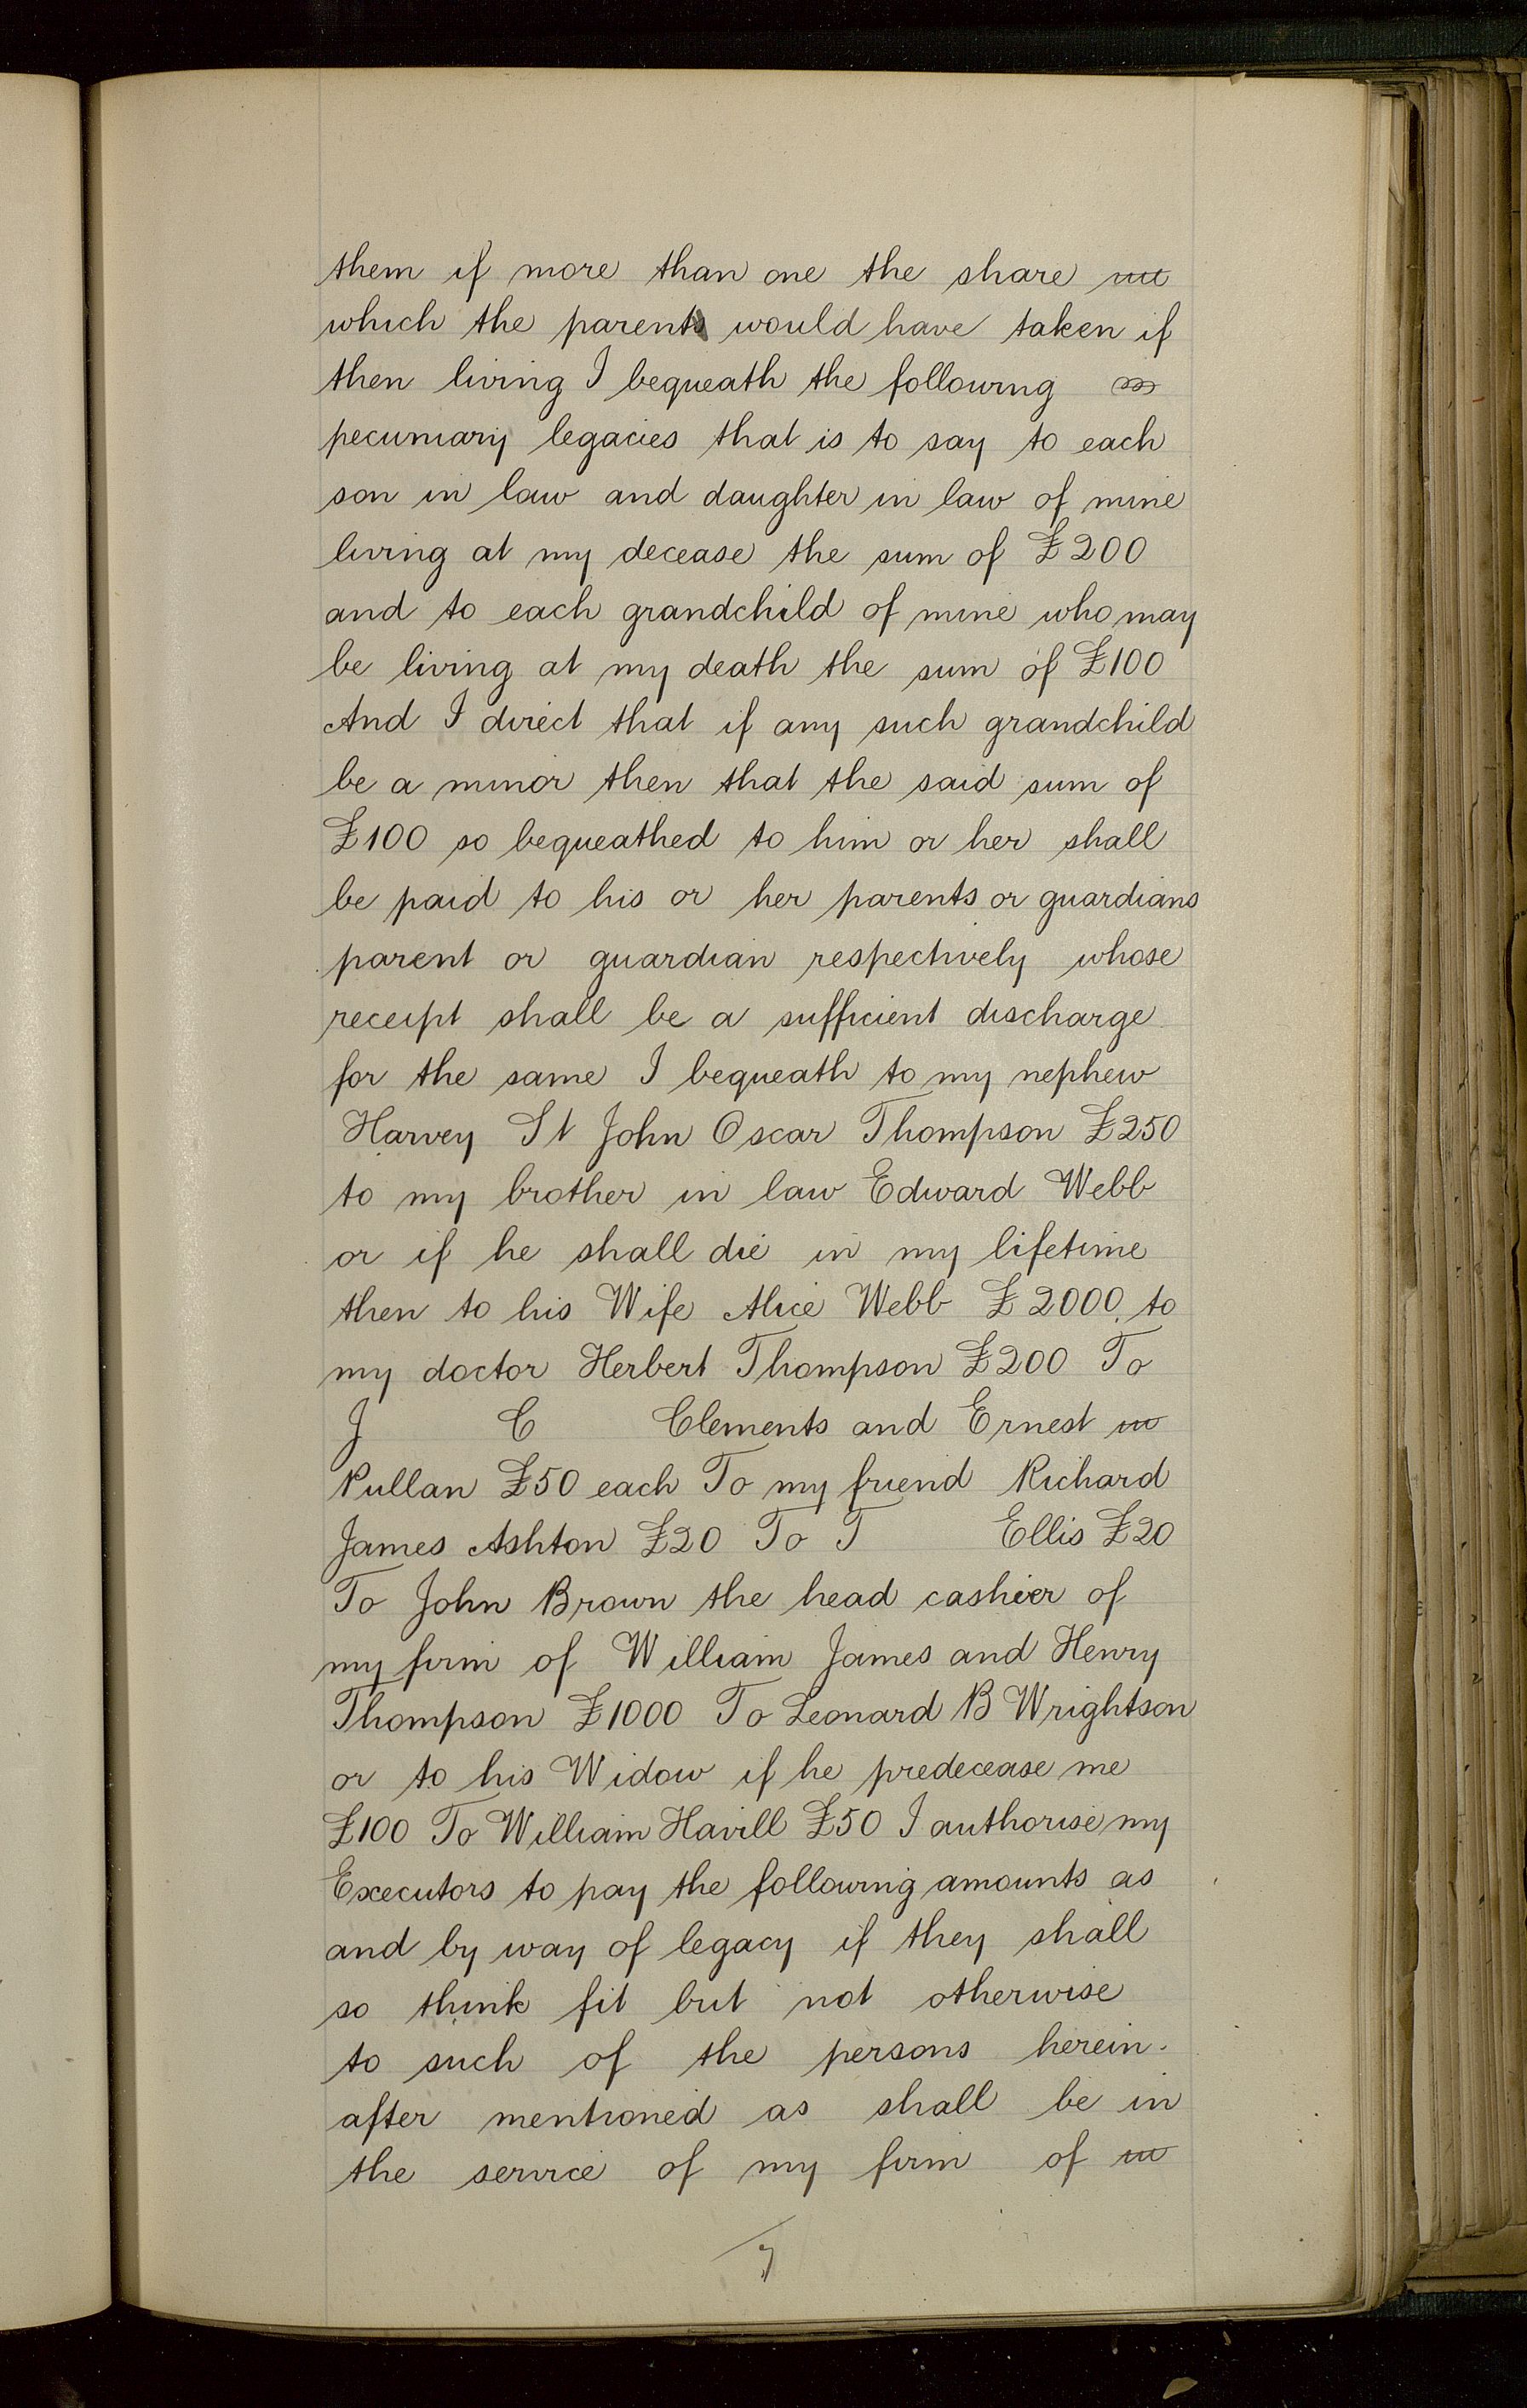 them if more than one the share
which the parent would have taken if
then living I bequeath the following
pecuniary legacies that is to say to each
son in law and daughter in law of mine
living at my decease the sum of £200
and to each grandchild of mine who may
be living at my death the sum of £100
And I direct that if any such grandchild
be a minor then that the said sum of
£100 so bequeathed to him or her shall
be paid to his or her parents or guardians
parent or guardian respectively whose
receipt shall be a sufficient discharge
for the same I bequeath to my nephew
Harvey St John Oscar Thompson £250
to my brother in law Edward Webb
or if he shall die in my lifetime
then to his Wife Alice Webb £2000. to
my doctor Herbert Thompson £200 To
J C Clements and Ernest
Pullan £50 each To my friend Richard
James Ashton £20 To T Ellis £20
To John Brown the head cashier of
my firm of William James and Henry
Thompson £1000 To Leonard B Wrightson
or to his Widow if he predecease me
£100 To William Havill £50 I authorise my
Executors to pay the following amounts as
and by way of legacy if they shall
so think fit but not otherwise
to such of the persons herein-
after mentioned as shall be in
the service of my firm of
7